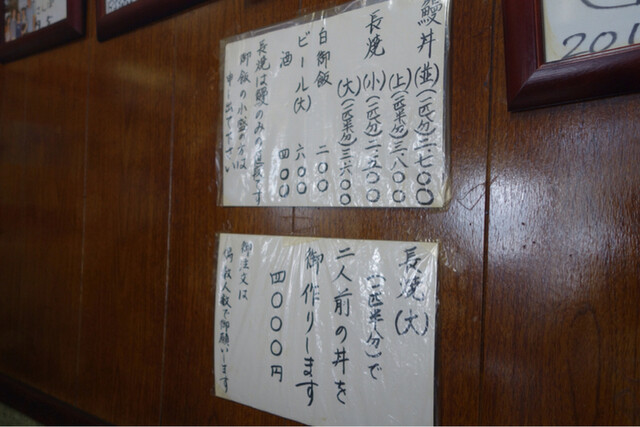 鰻丼(並)(一匹分)二.七〇〇
(上)(一匹半分)三.八〇〇
長焼(小)(一匹分)二.五〇〇
(大)(一匹半分)三.六〇〇
白御飯 二〇〇
ビール(大) 六〇〇
酒 四〇〇
長焼は鰻のみの値段です
御飯の小盛の方は
申し出て下さい
長焼(大)
(一匹半分)で
二人前の丼を
御作りします
四〇〇〇円
御注文は
人数で御願いします
201